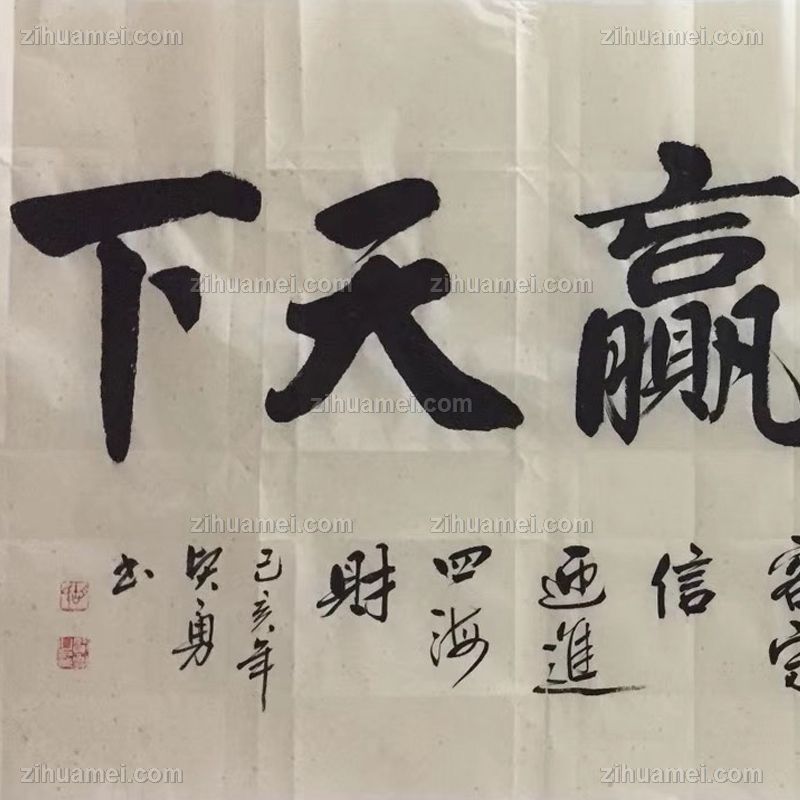 赢天下
客
信
迎進
四海
財
己亥年
勇
书
zihuamei.com
zihuamei.com
zihuamei.com
zihuamei.com
zihuamei.com
zihuamei.com
zihuamei.com
zihuamei.com
zihuamei.com